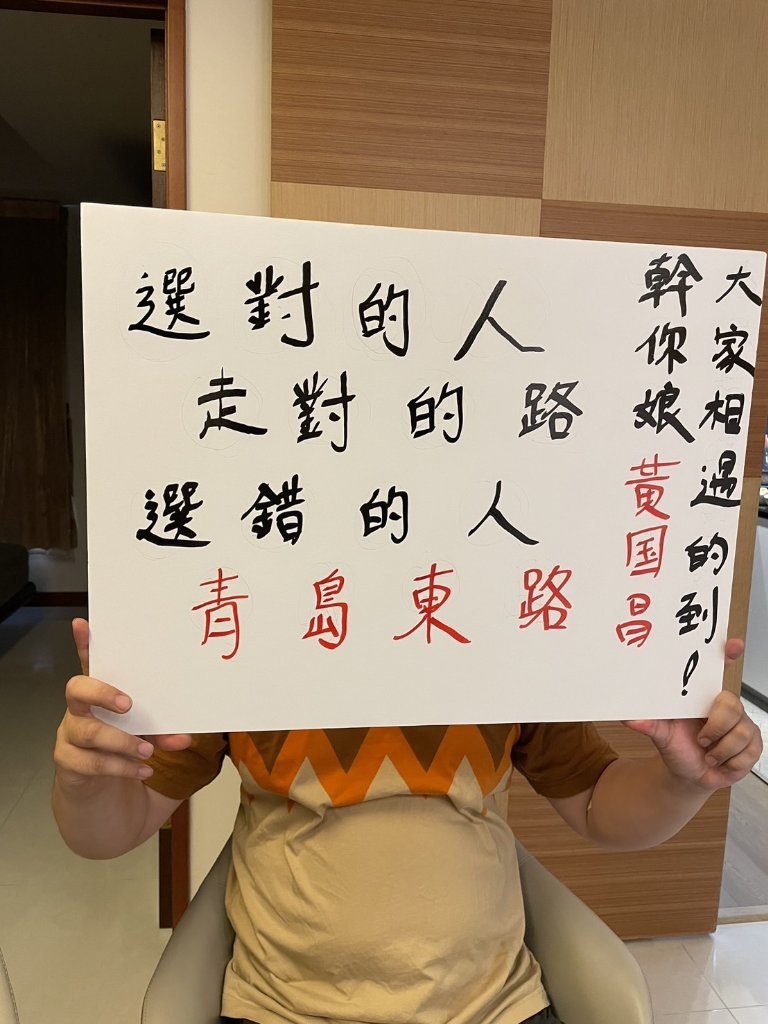 選對的人
走對的路
選錯的人
青島東路
大家相遇的到!
幹你娘黃国昌